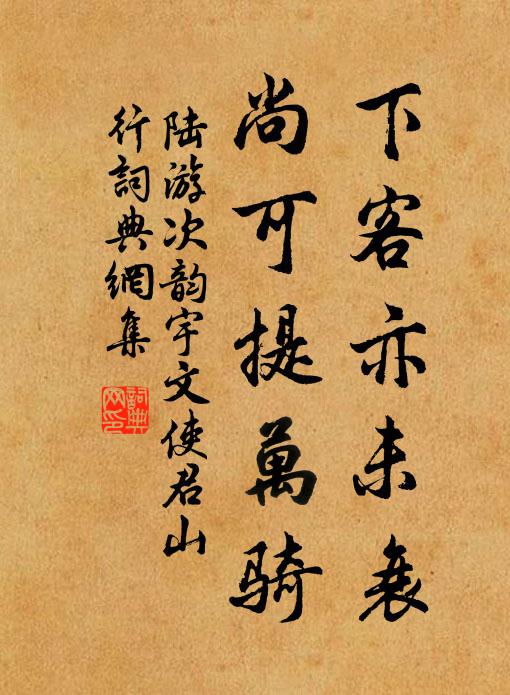 下客亦未衰
尚可提萬騎
陆游次韵宇文使君山
行詞典網集
詞典網印